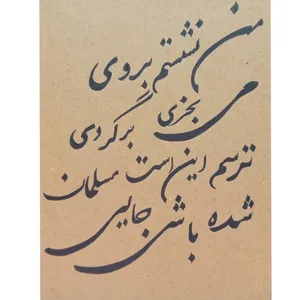 من نشستم بروی
می بخری برگردی
ترسم این است مسلمان
شده باشی جایی